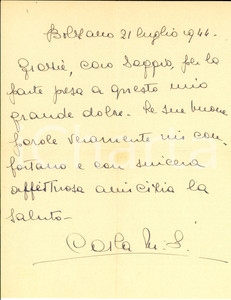 Bolzano 21 luglio 1944.
Grazie, caro Saggio, per la
parte presa a questo mio
grande dolore. Le sue buone
parole veramente mi con-
fortano e con sincera
affettuosa amicizia la
saluto -
Carla M. S.